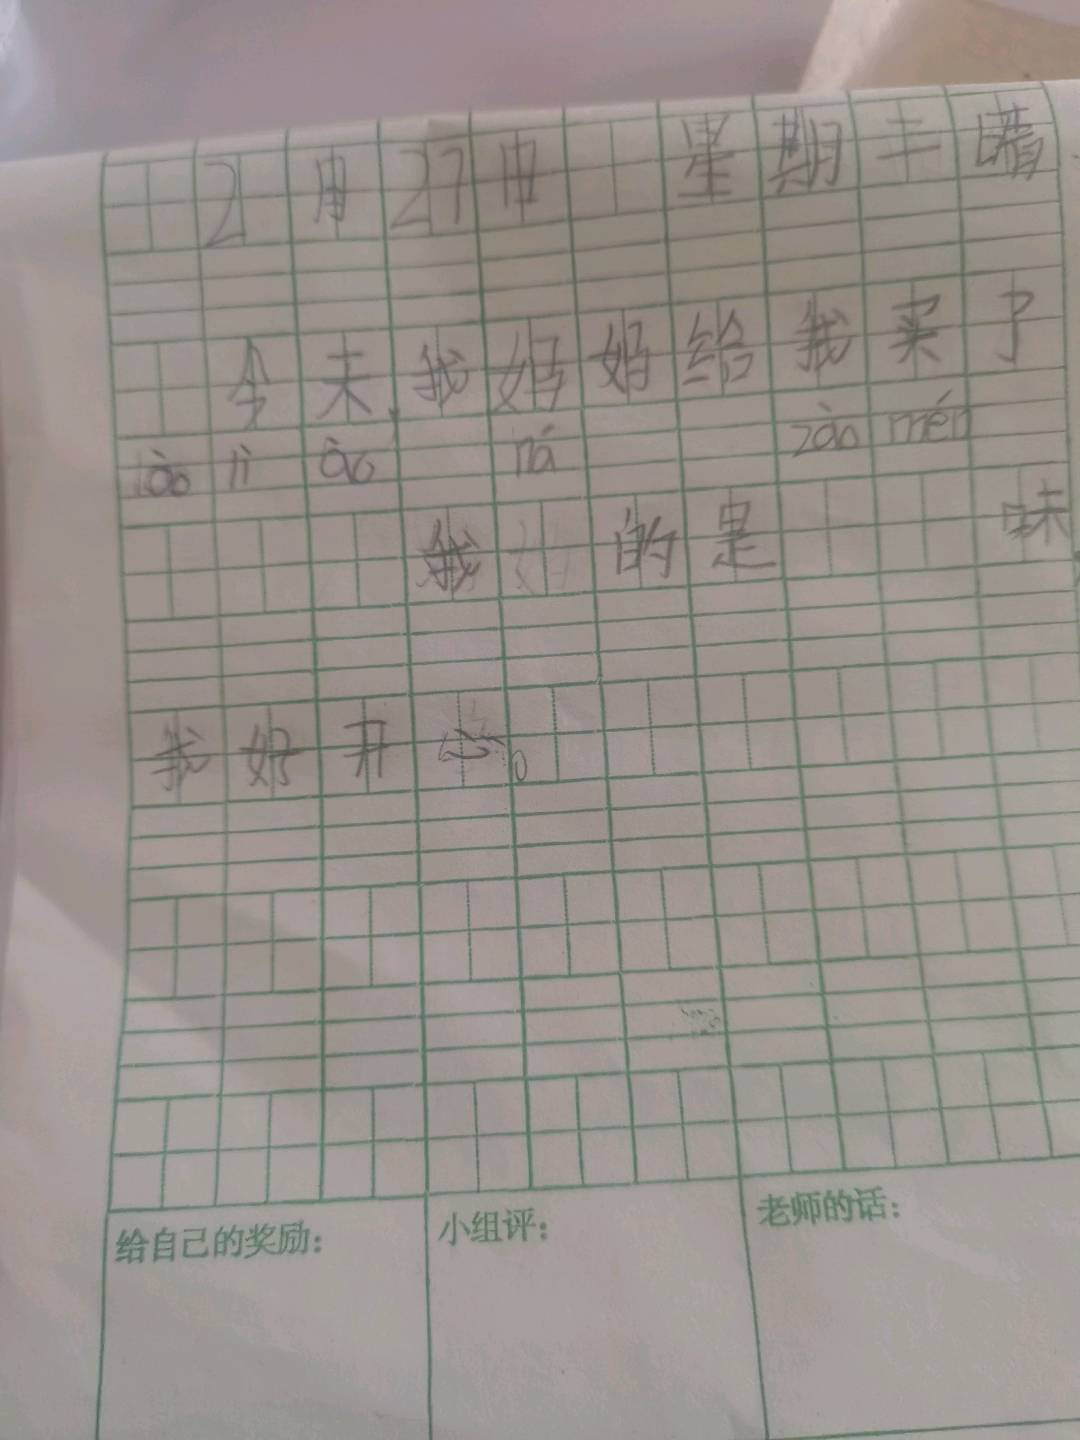 2月27日 星期二晴
今天我妈妈给我买了
lì ào ná zǎo mén
我 的是 味
我好开心。
给自己的奖励: 小组评: 老师的话: